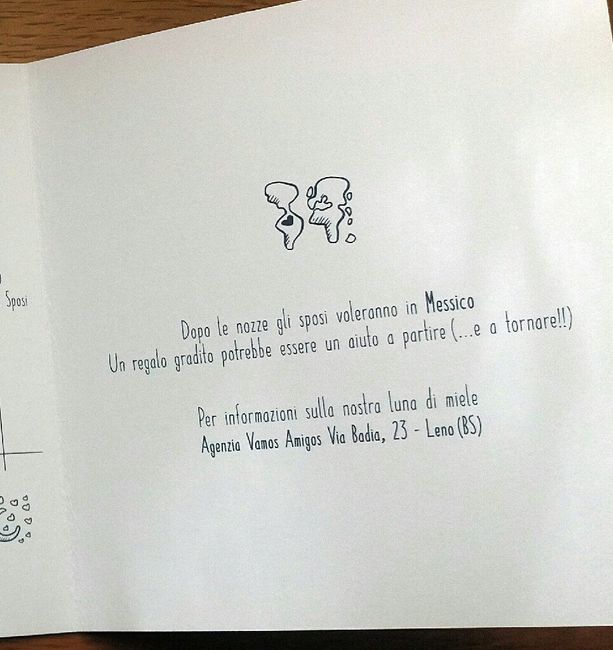 Sposi
Dopo le nozze gli sposi voleranno in Messico
Un regalo gradito potrebbe essere un aiuto a partire (...e a tornare!!)
Per informazioni sulla nostra luna di miele
Agenzia Vamos Amigos Via Badia, 23 - Leno (BS)